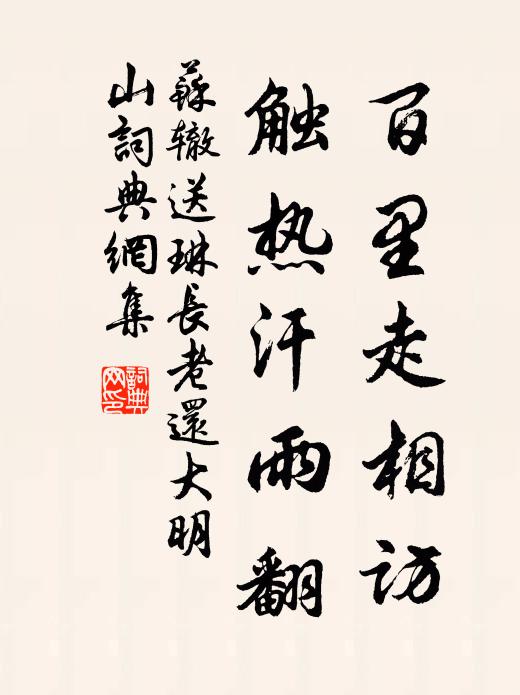 百里走相访
触热汗雨翻
蘇辙送琳長老還大明
山詞典網集
詞典
网印